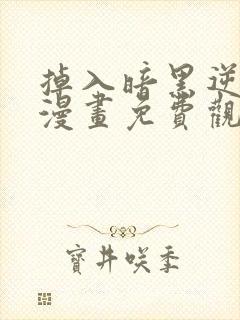 掉入暗黑逆
漫畫免費觀
寶井咲季